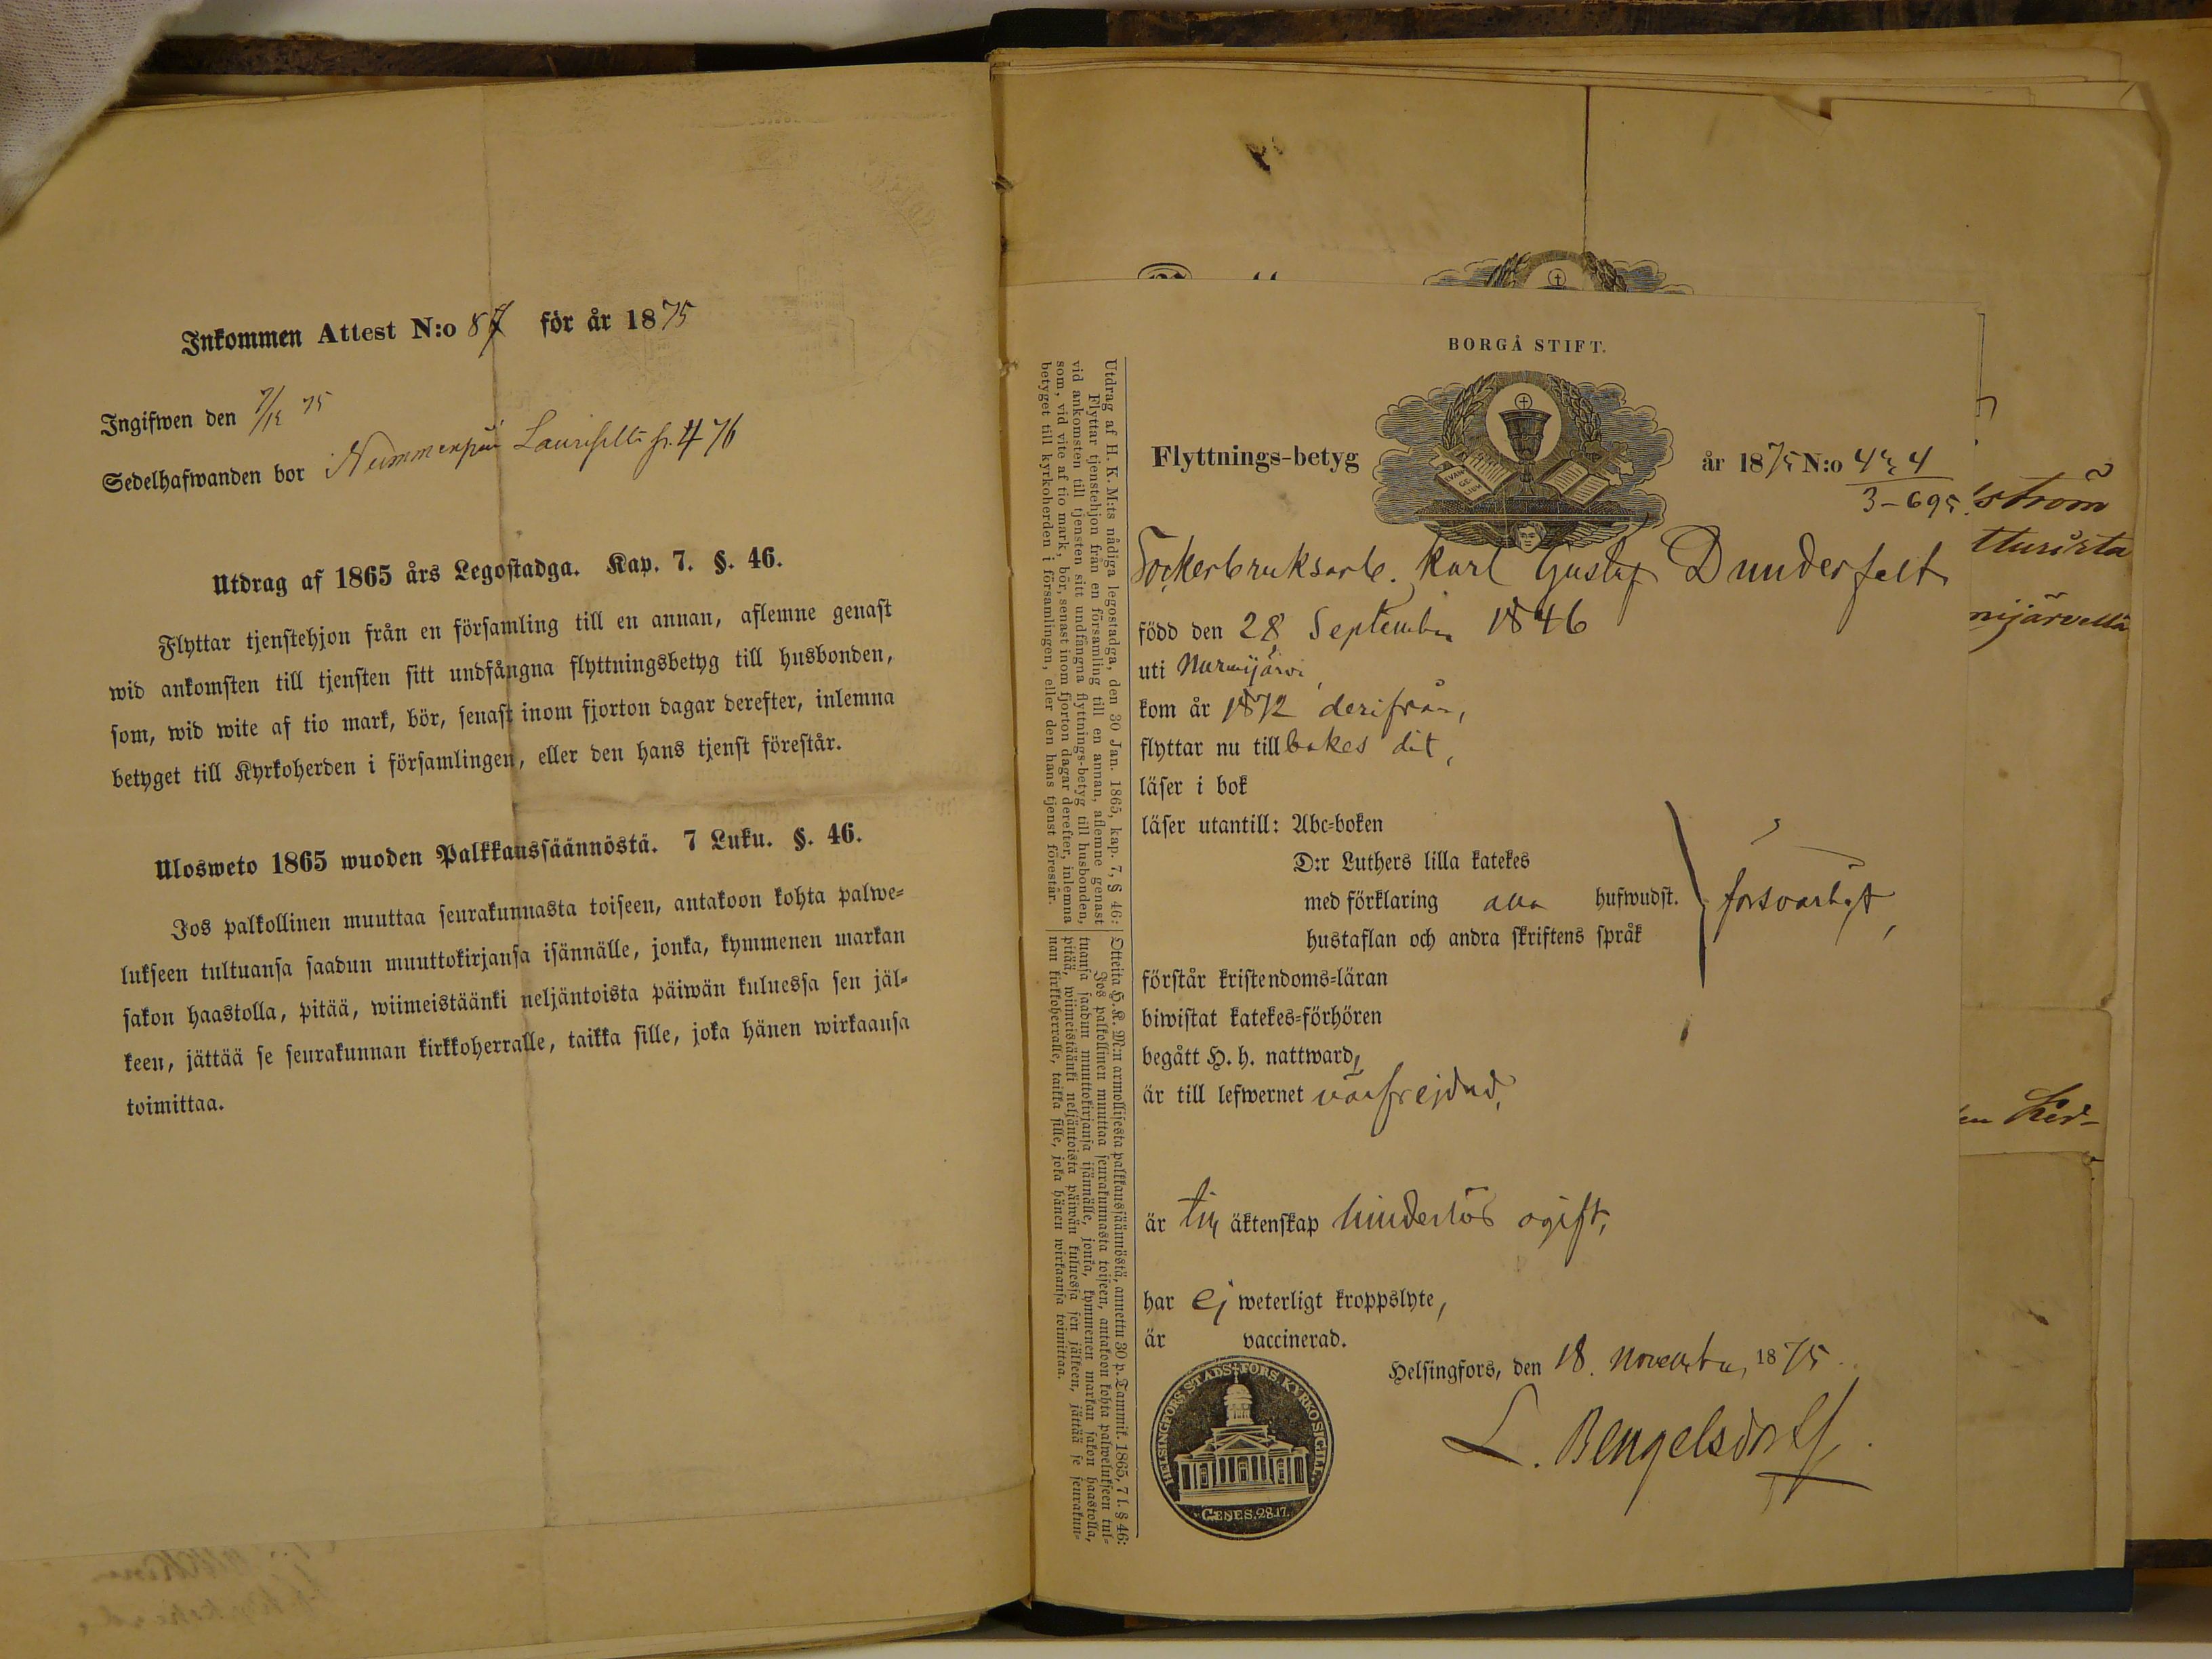 Inkommen Attest N:o 87 för år 1875
Ingifwen den 7/12 75
Sedelhafwanden bor Nummenpää 476
Utdrag af 1865 års Legostadga. Kap. 7. §. 46.
Flyttar tjenstehjon från en församling till en annan, aflemne genast
wid ankomsten till tjensten sitt undfångna flyttningsbetyg till husbonden,
som, wid wite af tio mark, bör, senast inom fjorton dagar derefter, inlemna
betyget till Kyrkoherden i församlingen, eller den hans tjenst förestår.
Ulosweto 1865 wuoden Palkkaussäännöstä. 7 Luku. §. 46.
Jos palkollinen muuttaa seurakunnasta toiseen, antakoon kohta palwe-
lukseen tultuansa saadun muuttokirjansa isännälle, jonka, kymmenen markan
sakon haastolla, pitää, wiimeistäänki neljäntoista päiwän kuluessa sen jäl-
keen, jättää se seurakunnan kirkkoherralle, taikka sille, joka hänen wirkaansa
toimittaa.
Utdrag af H. K. M:ts nådiga legostadga, den 30 Jan. 1865, kap. 7, § 46:
Flyttar tjenstehjon från en församling till en annan, aflemne genast
vid ankomsten till tjensten sitt undfångna flyttnings-betyg till husbonden,
som, vid vite af tio mark, bör, senast inom fjorton dagar derefter, inlemna
betyget till kyrkoherden i församlingen, eller den hans tjenst förestår.
Otteita H. K. M:n armollisesta palkkaussäännöstä, annettu 30 p. Tammik. 1865, 7 l. § 46:
Jos palkollinen muuttaa seurakunnasta toiseen, antakoon kohta palwelukseen tul-
tuansa saadun muuttokirjansa isännälle, jonka, kymmenen markan sakon haastolla,
pitää, wiimeistäänki neljäntoista päiwän kuluessa sen jälkeen, jättää se seurakun-
nan kirkkoherralle, taikka sille, joka hänen wirkaansa toimittaa.
BORGÅ STIFT.
EVAN
GE
LIUM
Flyttnings-betyg år 1875 N:o 454
3-695.
Sockerbruksarb. Karl Gustaf Dunderfelt
född den 28 September 1846
uti Nurmijärvi,
kom år 1872 derifrån,
flyttar nu tillbakes dit,
läser i bok
läser utantill: Abc-boken
D:r Luthers lilla katekes
med förklaring alla hufwudst. försvarligt,
hustaflan och andra skriftens språk
förstår kristendoms-läran
biwistat katekes-förhören
begått H. h. nattward,
är till lefwernet välfrejdad,
är till äktenskap hinderlös ogift,
har ej weterligt kroppslyte,
är vaccinerad.
Helsingfors, den 18. November 1875.
L. Bengelsdorff
HELSINGFORS STADS FÖRS. KYRKO SIGILL.
GENES. 28.17.
ström
tturista
mijärvellä